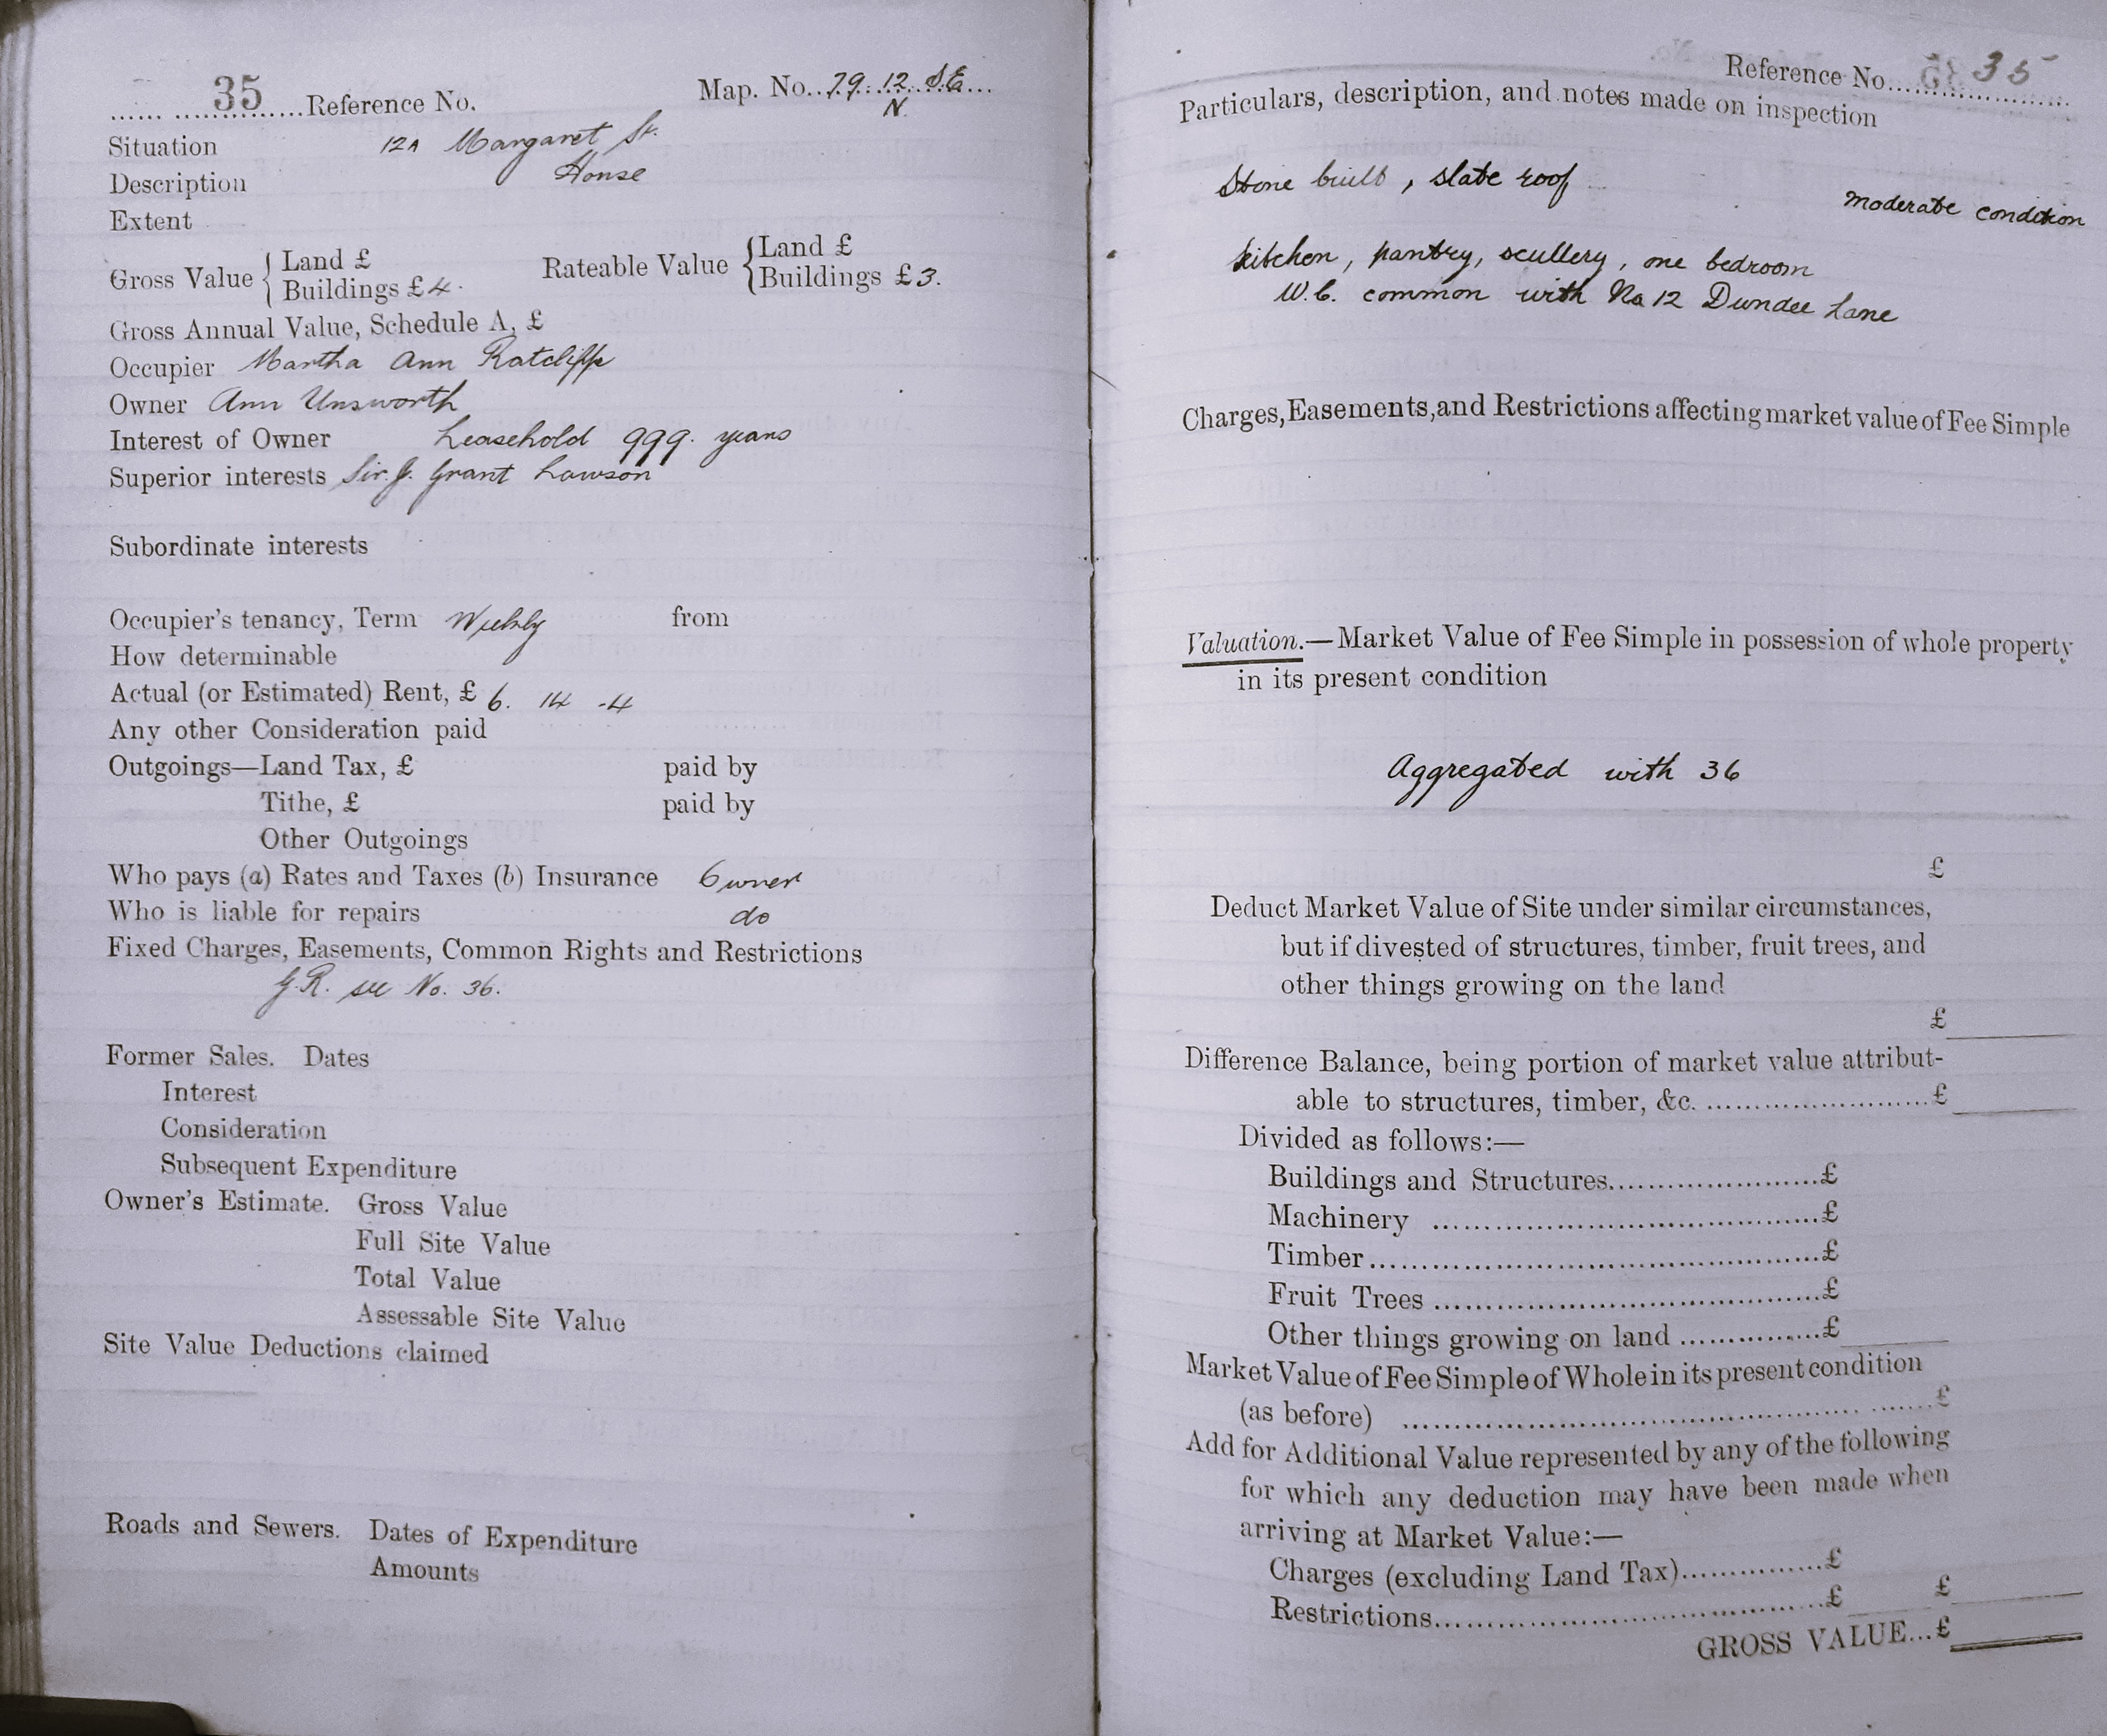 35 Reference No. Map. No. 79. 12. S.E.
N.
Situation 12A Margaret St.
Description House
Extent
Gross Value { Land £
Buildings £4.
Rateable Value { Land £
Buildings £3.
Gross Annual Value, Schedule A, £
Occupier Martha Ann Ratcliffe
Owner Ann Unsworth
Interest of Owner Leasehold 999. years
Superior interests Sir. J. Grant Lawson
Subordinate interests
Occupier's tenancy, Term Weekly from
How determinable
Actual (or Estimated) Rent, £ 6. 14 -4
Any other Consideration paid
Outgoings—Land Tax, £ paid by
Tithe, £ paid by
Other Outgoings
Who pays (a) Rates and Taxes (b) Insurance Owner
Who is liable for repairs do
Fixed Charges, Easements, Common Rights and Restrictions
G.R. see No. 36.
Former Sales. Dates
Interest
Consideration
Subsequent Expenditure
Owner's Estimate. Gross Value
Full Site Value
Total Value
Assessable Site Value
Site Value Deductions claimed
Roads and Sewers. Dates of Expenditure
Amounts
Reference No. 35
Particulars, description, and notes made on inspection
Stone built, slate roof
moderate condition
kitchen, pantry, scullery, one bedroom
W.C. common with No 12 Dundee Lane
Charges, Easements, and Restrictions affecting market value of Fee Simple
Valuation.—Market Value of Fee Simple in possession of whole property
in its present condition
Aggregated with 36
£
Deduct Market Value of Site under similar circumstances,
but if divested of structures, timber, fruit trees, and
other things growing on the land
£
Difference Balance, being portion of market value attribut-
able to structures, timber, &c. ........................£
Divided as follows:—
Buildings and Structures......................£
Machinery ......................................£
Timber............................................£
Fruit Trees ......................................£
Other things growing on land ..............£
Market Value of Fee Simple of Whole in its present condition
(as before) ....................................................£
Add for Additional Value represented by any of the following
for which any deduction may have been made when
arriving at Market Value:—
Charges (excluding Land Tax)..............£
Restrictions......................................£ £
GROSS VALUE...£